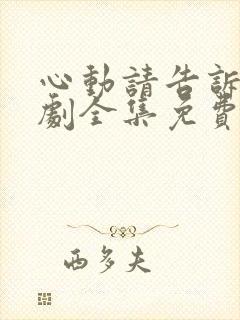 心動請告訴
劇全集免費
西多夫